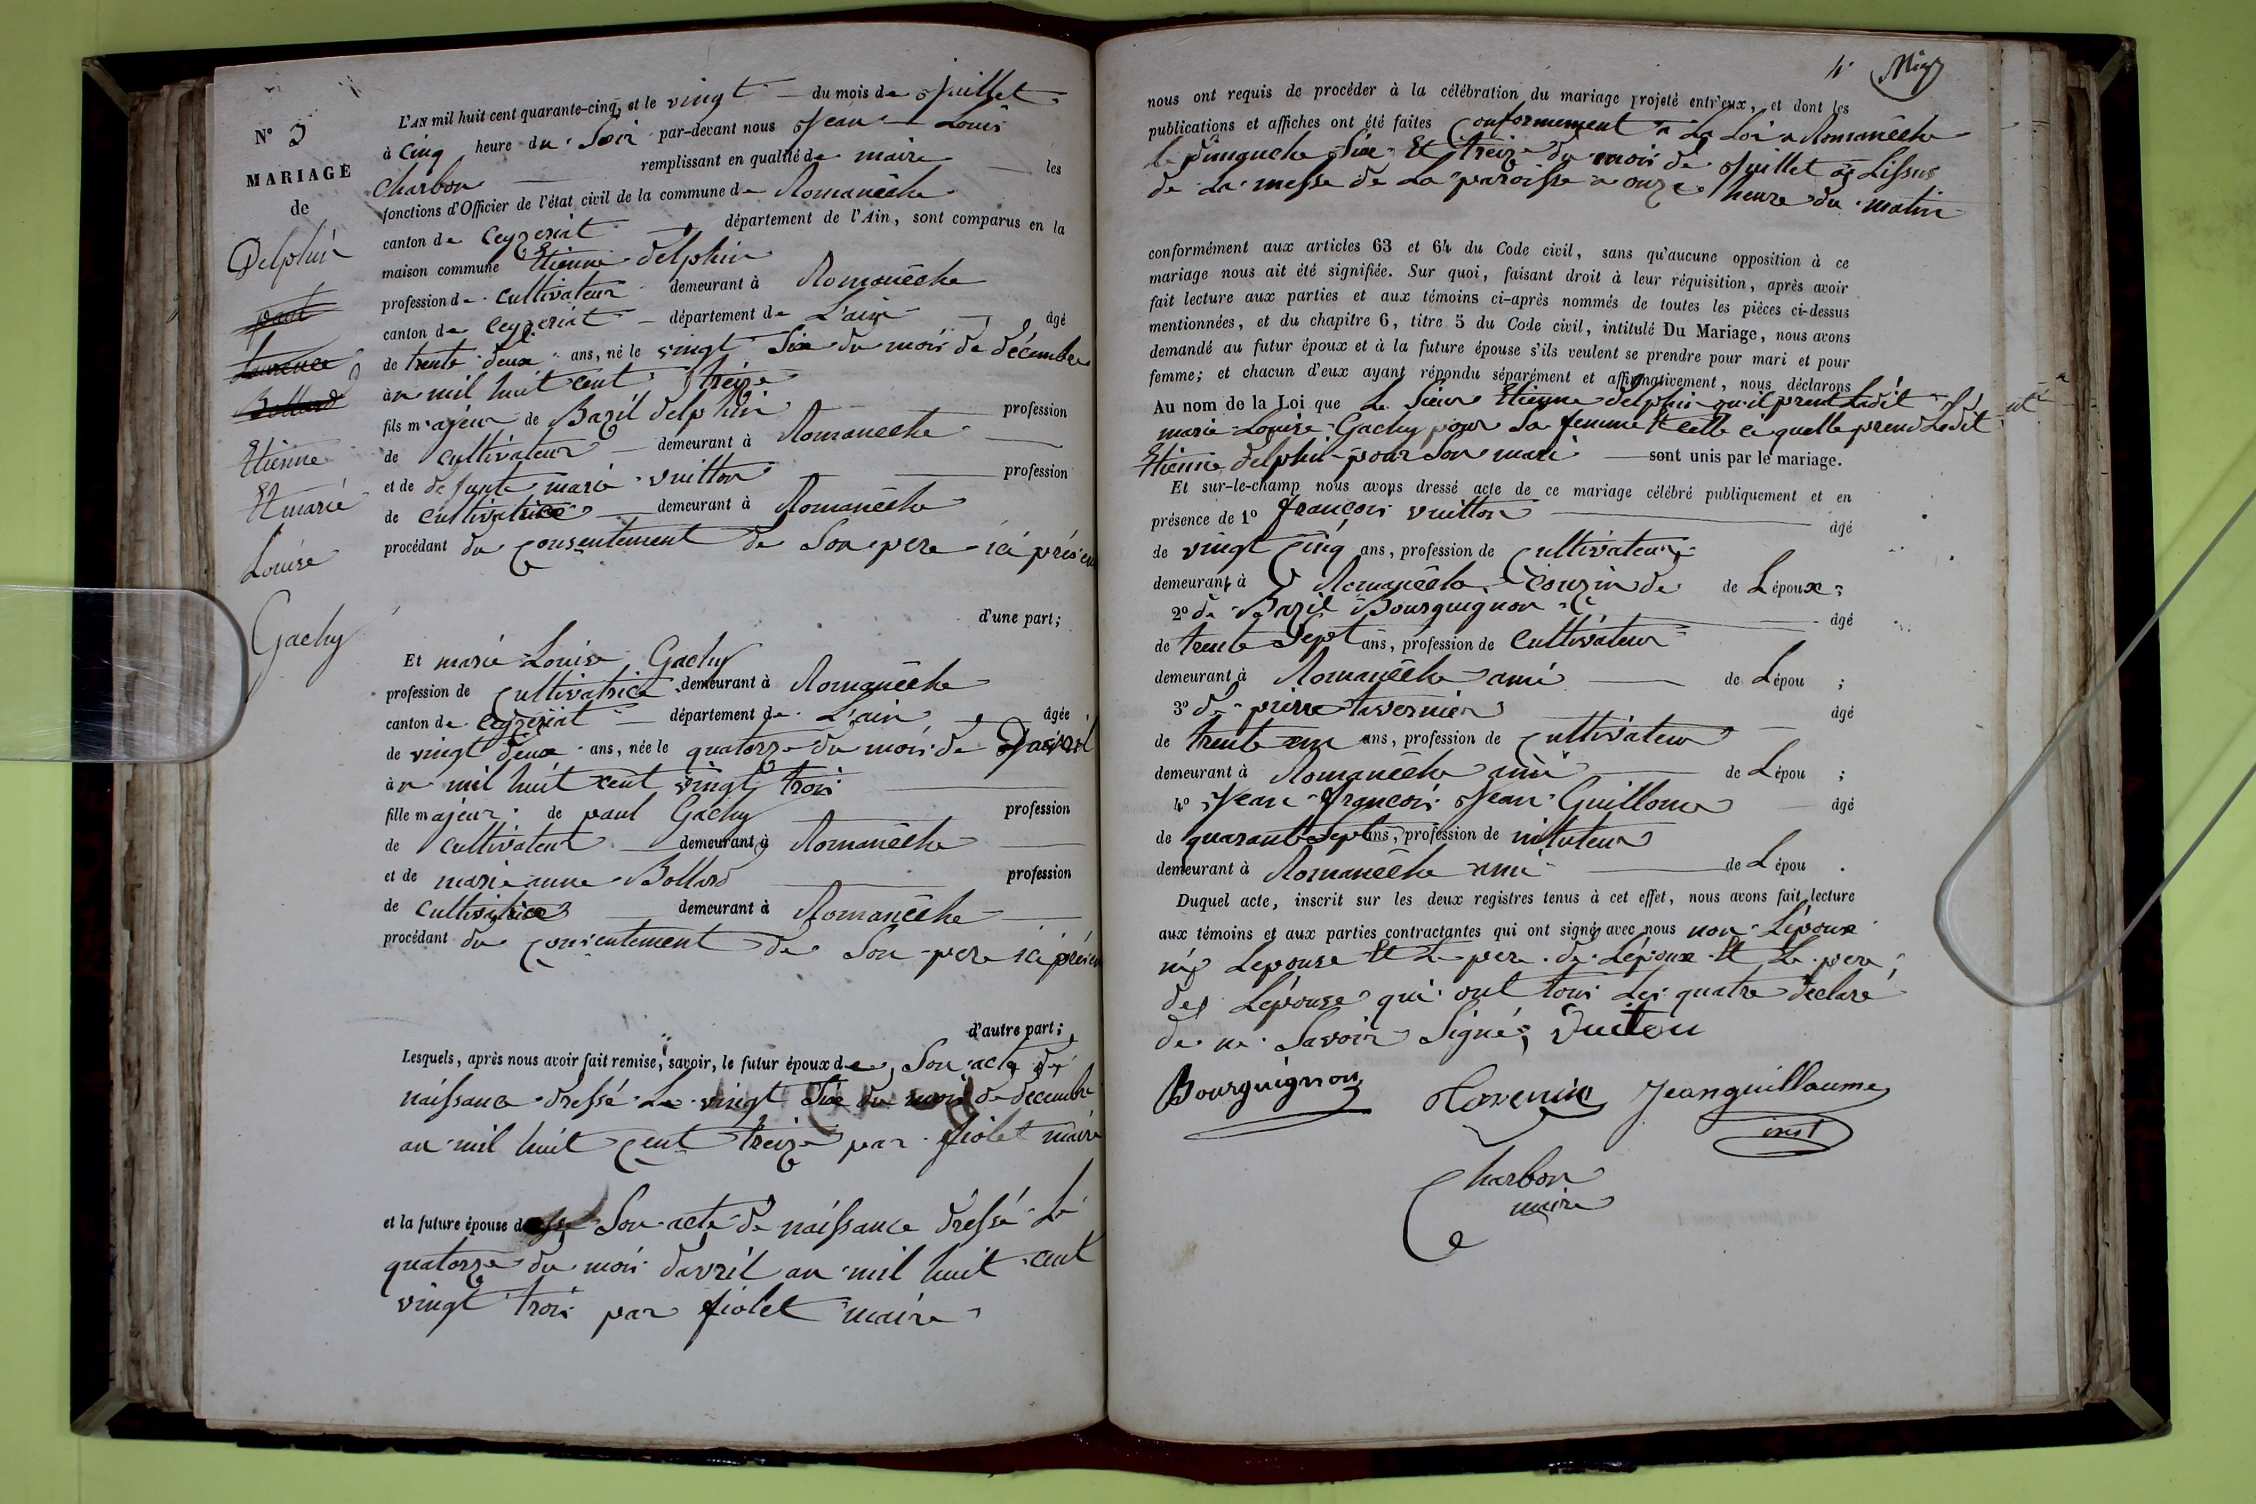 N° 3
MARIAGE
de
Delphin
paul
Laurence
Bollard
Etienne
Et marie
Louise
Gachy
L'AN mil huit cent quarante-cinq, et le vingt du mois de Juillet
à cinq heure du Soir par-devant nous Jean Louis
Charbon remplissant en qualité de maire les
fonctions d'Officier de l'état civil de la commune de Romanêche
canton de Ceyzeriat département de l'Ain, sont comparus en la
maison commune Etienne delphin
profession de cultivateur demeurant à Romanêche
canton de Ceyzeriat département de L'ain âgé
de trente deux ans, né le vingt Six du mois de décembre
an mil huit cent treize
fils majeur de Bazil delphin profession
de cultivateur demeurant à Romanêche
et de defunte marie vuitton profession
de cultivatrice demeurant à Romanêche
procédant du Consentement de Son pere ici présen
d'une part;
Et marie Louise Gachy
profession de Cultivatrice demeurant à Romanêche
canton de Ceyzeriat département de L'ain âgée
de vingt deux ans, née le quatorze du mois de Davril
an mil huit cent vingt trois
fille majeur de paul Gachy profession
de cultivateur demeurant à Romanêche
et de marie anne Bollard profession
de cultivatrice demeurant à Romanêche
procédant du Consentement de Son pere ici présen
d'autre part;
Lesquels, après nous avoir fait remise, savoir, le futur époux de Son acte de
naissance dressé Le vingt Six du mois de decembre
an mil huit Cent treize par fiolet maire
et la future épouse de Son acte de naissance dressé Le
quatorze du mois davril an mil huit cent
vingt trois par fiolet maire
4
nous ont requis de procéder à la célébration du mariage projeté entr'eux, et dont les
publications et affiches ont été faites Conformement a La Loi a Romanêche
le dimanche Six Et treize du mois de Juillet a Lissus
de La messe de La paroisse a onze heure du matin
conformément aux articles 63 et 64 du Code civil, sans qu'aucune opposition à ce
mariage nous ait été signifiée. Sur quoi, faisant droit à leur réquisition, après avoir
fait lecture aux parties et aux témoins ci-après nommés de toutes les pièces ci-dessus
mentionnées, et du chapitre 6, titre 5 du Code civil, intitulé Du Mariage, nous avons
demandé au futur époux et à la future épouse s'ils veulent se prendre pour mari et pour
femme; et chacun d'eux ayant répondu séparément et affirmativement, nous déclarons
Au nom de la Loi que Le Sieur Etienne delphin qu'il prent Ladit
marie Louise Gachy pour Sa femme Et celle ci quelle prend Ledit
Etienne delphin pour Son mari sont unis par le mariage.
Et sur-le-champ nous avons dressé acte de ce mariage célébré publiquement et en
présence de 1° françois vuitton âgé
de vingt Cinq ans, profession de Cultivateur
demeurant à Romanêche Couzin de de Lépoux;
2° de Bazil Bourguignon âgé
de trente Sept ans, profession de Cultivateur
demeurant à Romanêche ami de Lépou ;
3° de pierre tavernier âgé
de trente un ans, profession de Cultivateur
demeurant à Romanêche ami de Lépou ;
4° Jean françois Jean Guillome âgé
de quarante Sept ans, profession de intuteur
demeurant à Romanêche ami de Lépou .
Duquel acte, inscrit sur les deux registres tenus à cet effet, nous avons fait lecture
aux témoins et aux parties contractantes qui ont signé avec nous non Lépoux
ny Lepouse Et Le pere de Lépoux Et Le pere
de Lépouse qui ont tous Les quatre déclaré
de ne Savoir Signé; Vuiton
Bourguignon Tavernier Jeanguillaume
inst
Charbon
maire